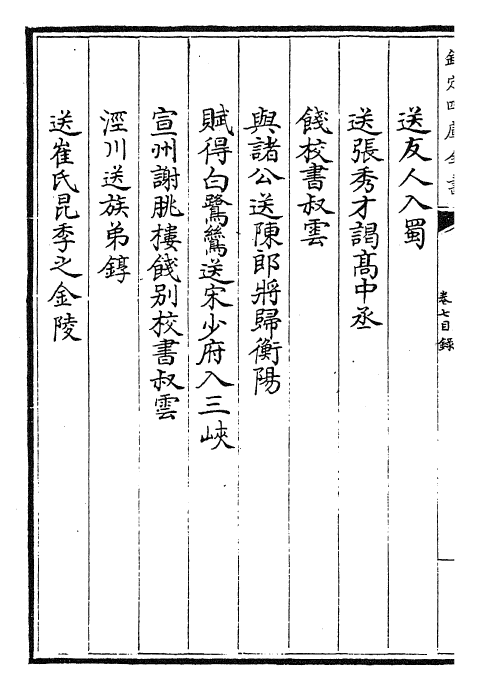 欽定四庫全書
卷七目録
送友人入蜀
送張秀才謁髙中丞
餞校書叔雲
與諸公送陳郎將歸衡陽
賦得白鷺鷥送宋少府入三峽
宣州謝朓樓餞别校書叔雲
涇川送族弟錞
送崔氏昆季之金陵